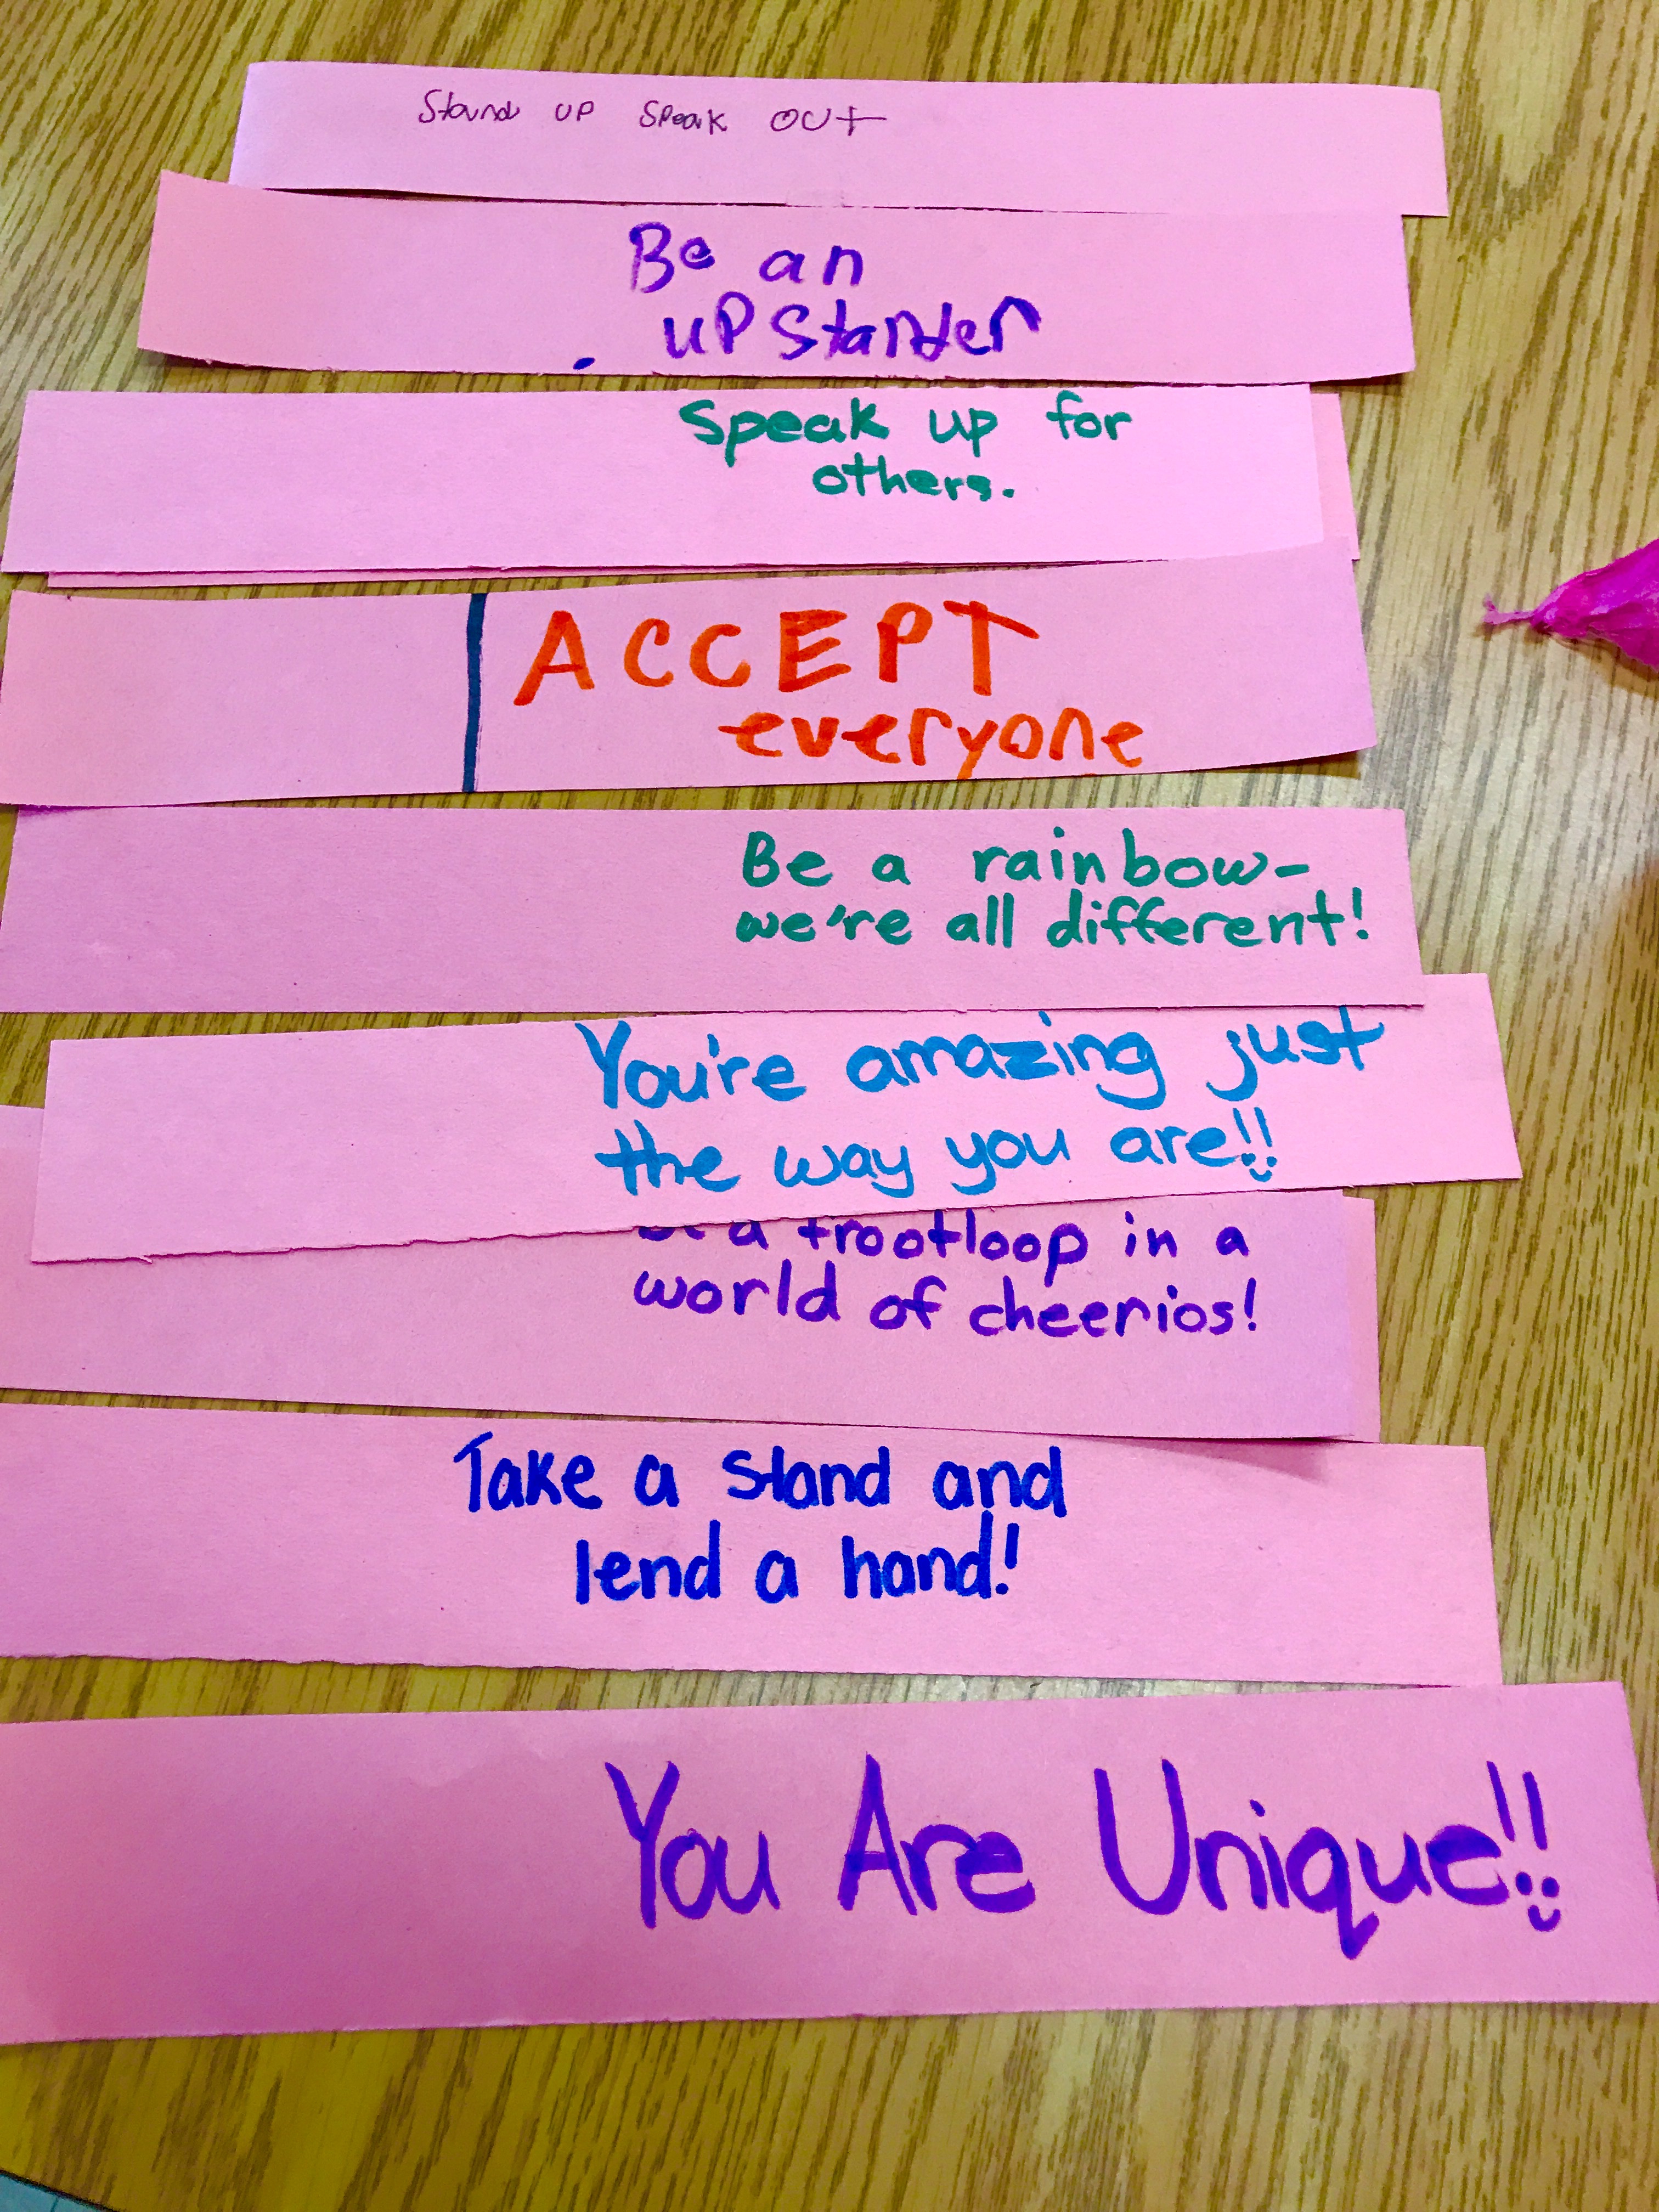 Stand up speak out
Be an
upstander
Speak up for
others.
ACCEPT
everyone
Be a rainbow-
we're all different!
You're amazing just
the way you are!!
Be a frootloop in a
world of cheerios!
Take a stand and
lend a hand!
You Are Unique!!